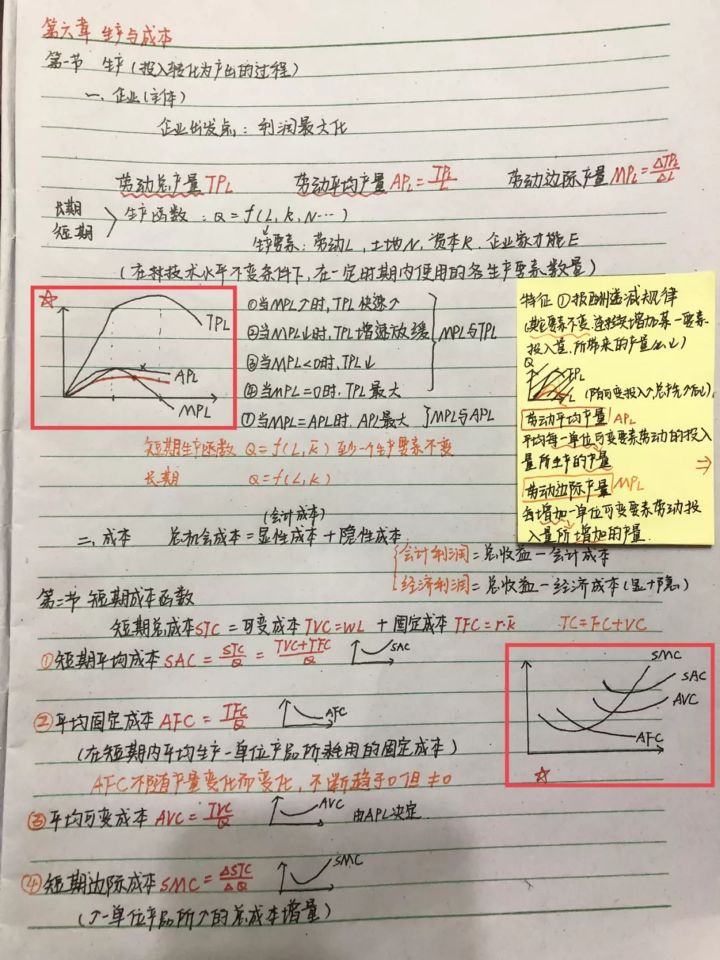 第六章 生产与成本
第一节 生产(投入转化为产出的过程)
一、企业(主体)
企业出发点：利润最大化
劳动总产量TPL 劳动平均产量APL=TPL/L 劳动边际产量MPL=ΔTPL/ΔL
长期
短期
生产函数：Q=f(L,K,N…)
生产要素：劳动L,土地N,资本K,企业家才能E
(在技术水平不变条件下,在一定时期内使用的各生产要素数量)
TPL
APL
MPL
①当MPL↑时,TPL快速↑
②当MPL↓时,TPL增速放缓
③当MPL<0时,TPL↓
④当MPL=0时,TPL最大
MPL与TPL
①当MPL=APL时,APL最大 }MPL与APL
短期生产函数 Q=f(L,K̄) 至少一个生产要素不变
长期 Q=f(L,K)
特征①报酬递减规律
其它要素不变,连续增加某一要素
投入量,所带来的产量
Q
TPL
L
劳动平均产量 APL
平均每一单位可变要素劳动的投入
量所生产的产量 ⇒
劳动边际产量 MPL
每增加一单位可变要素劳动投
入量所增加的产量.
(会计成本)
二、成本 总机会成本=显性成本+隐性成本
会计利润=总收益-会计成本
经济利润=总收益-经济成本(显+隐)
第二节 短期成本函数
短期总成本STC=可变成本TVC=wL+固定成本TFC=r·K̄ TC=FC+VC
①短期平均成本SAC=STC/Q=TVC+TFC/Q SAC
SMC
SAC
AVC
AFC
②平均固定成本AFC=TFC/Q AFC
(在短期内平均生产一单位产品所耗用的固定成本)
AFC不随产量变化而变化,不断趋于0但≠0
③平均可变成本AVC=TVC/Q AVC 由APL决定.
④短期边际成本SMC=ΔSTC/ΔQ SMC
(↑一单位产品所↑的总成本增量)